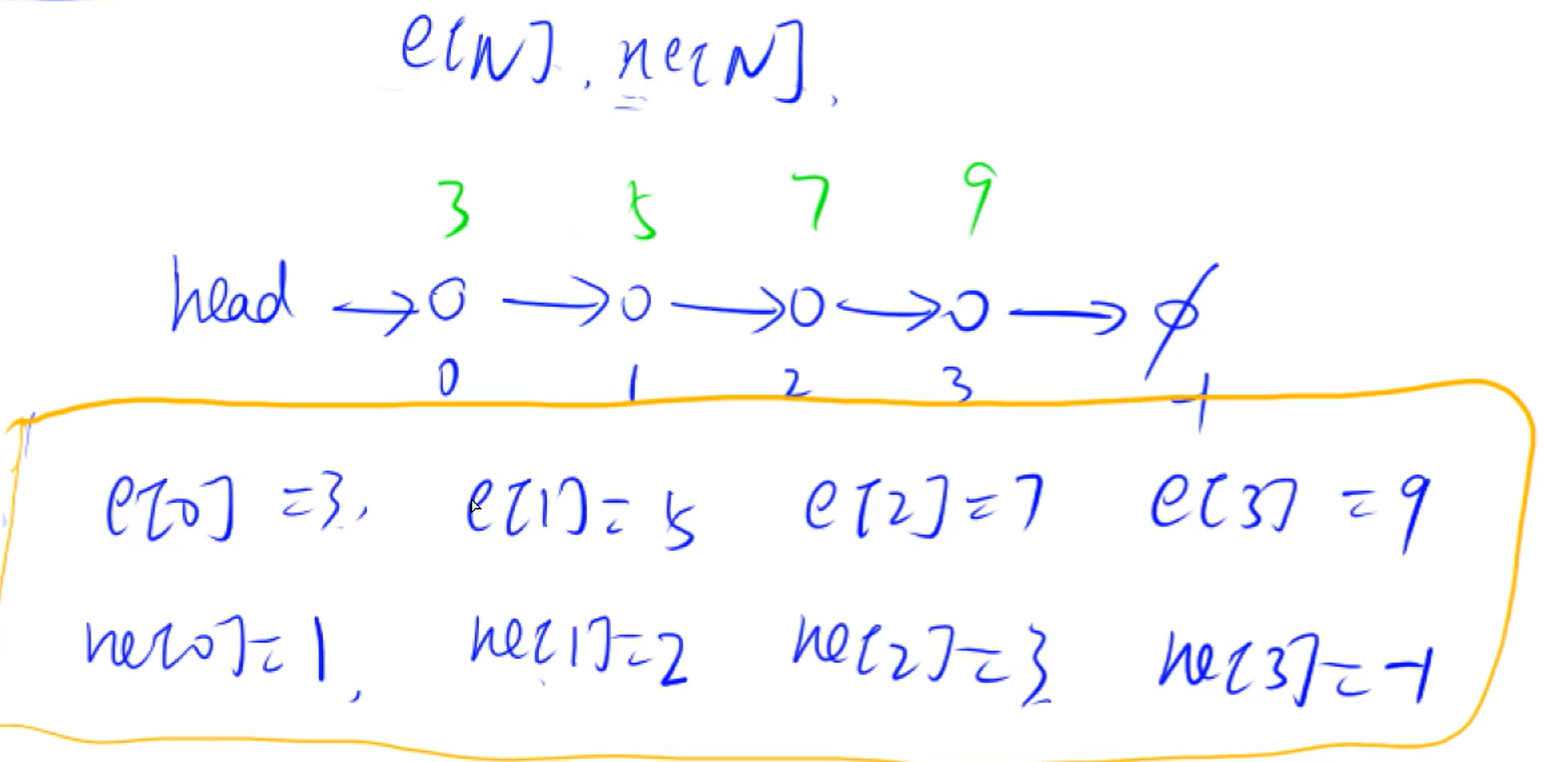 e[N], ne[N],
3 5 7 9
head → O → O → O → O → ∅
0 1 2 3 -1
e[0]=3, e[1]=5 e[2]=7 e[3]=9
ne[0]=1, ne[1]=2 ne[2]=3 ne[3]=-1